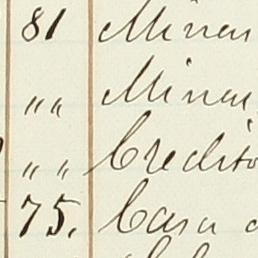 81 Minen
„ „ Minen
„ „ Credito
75. Casa